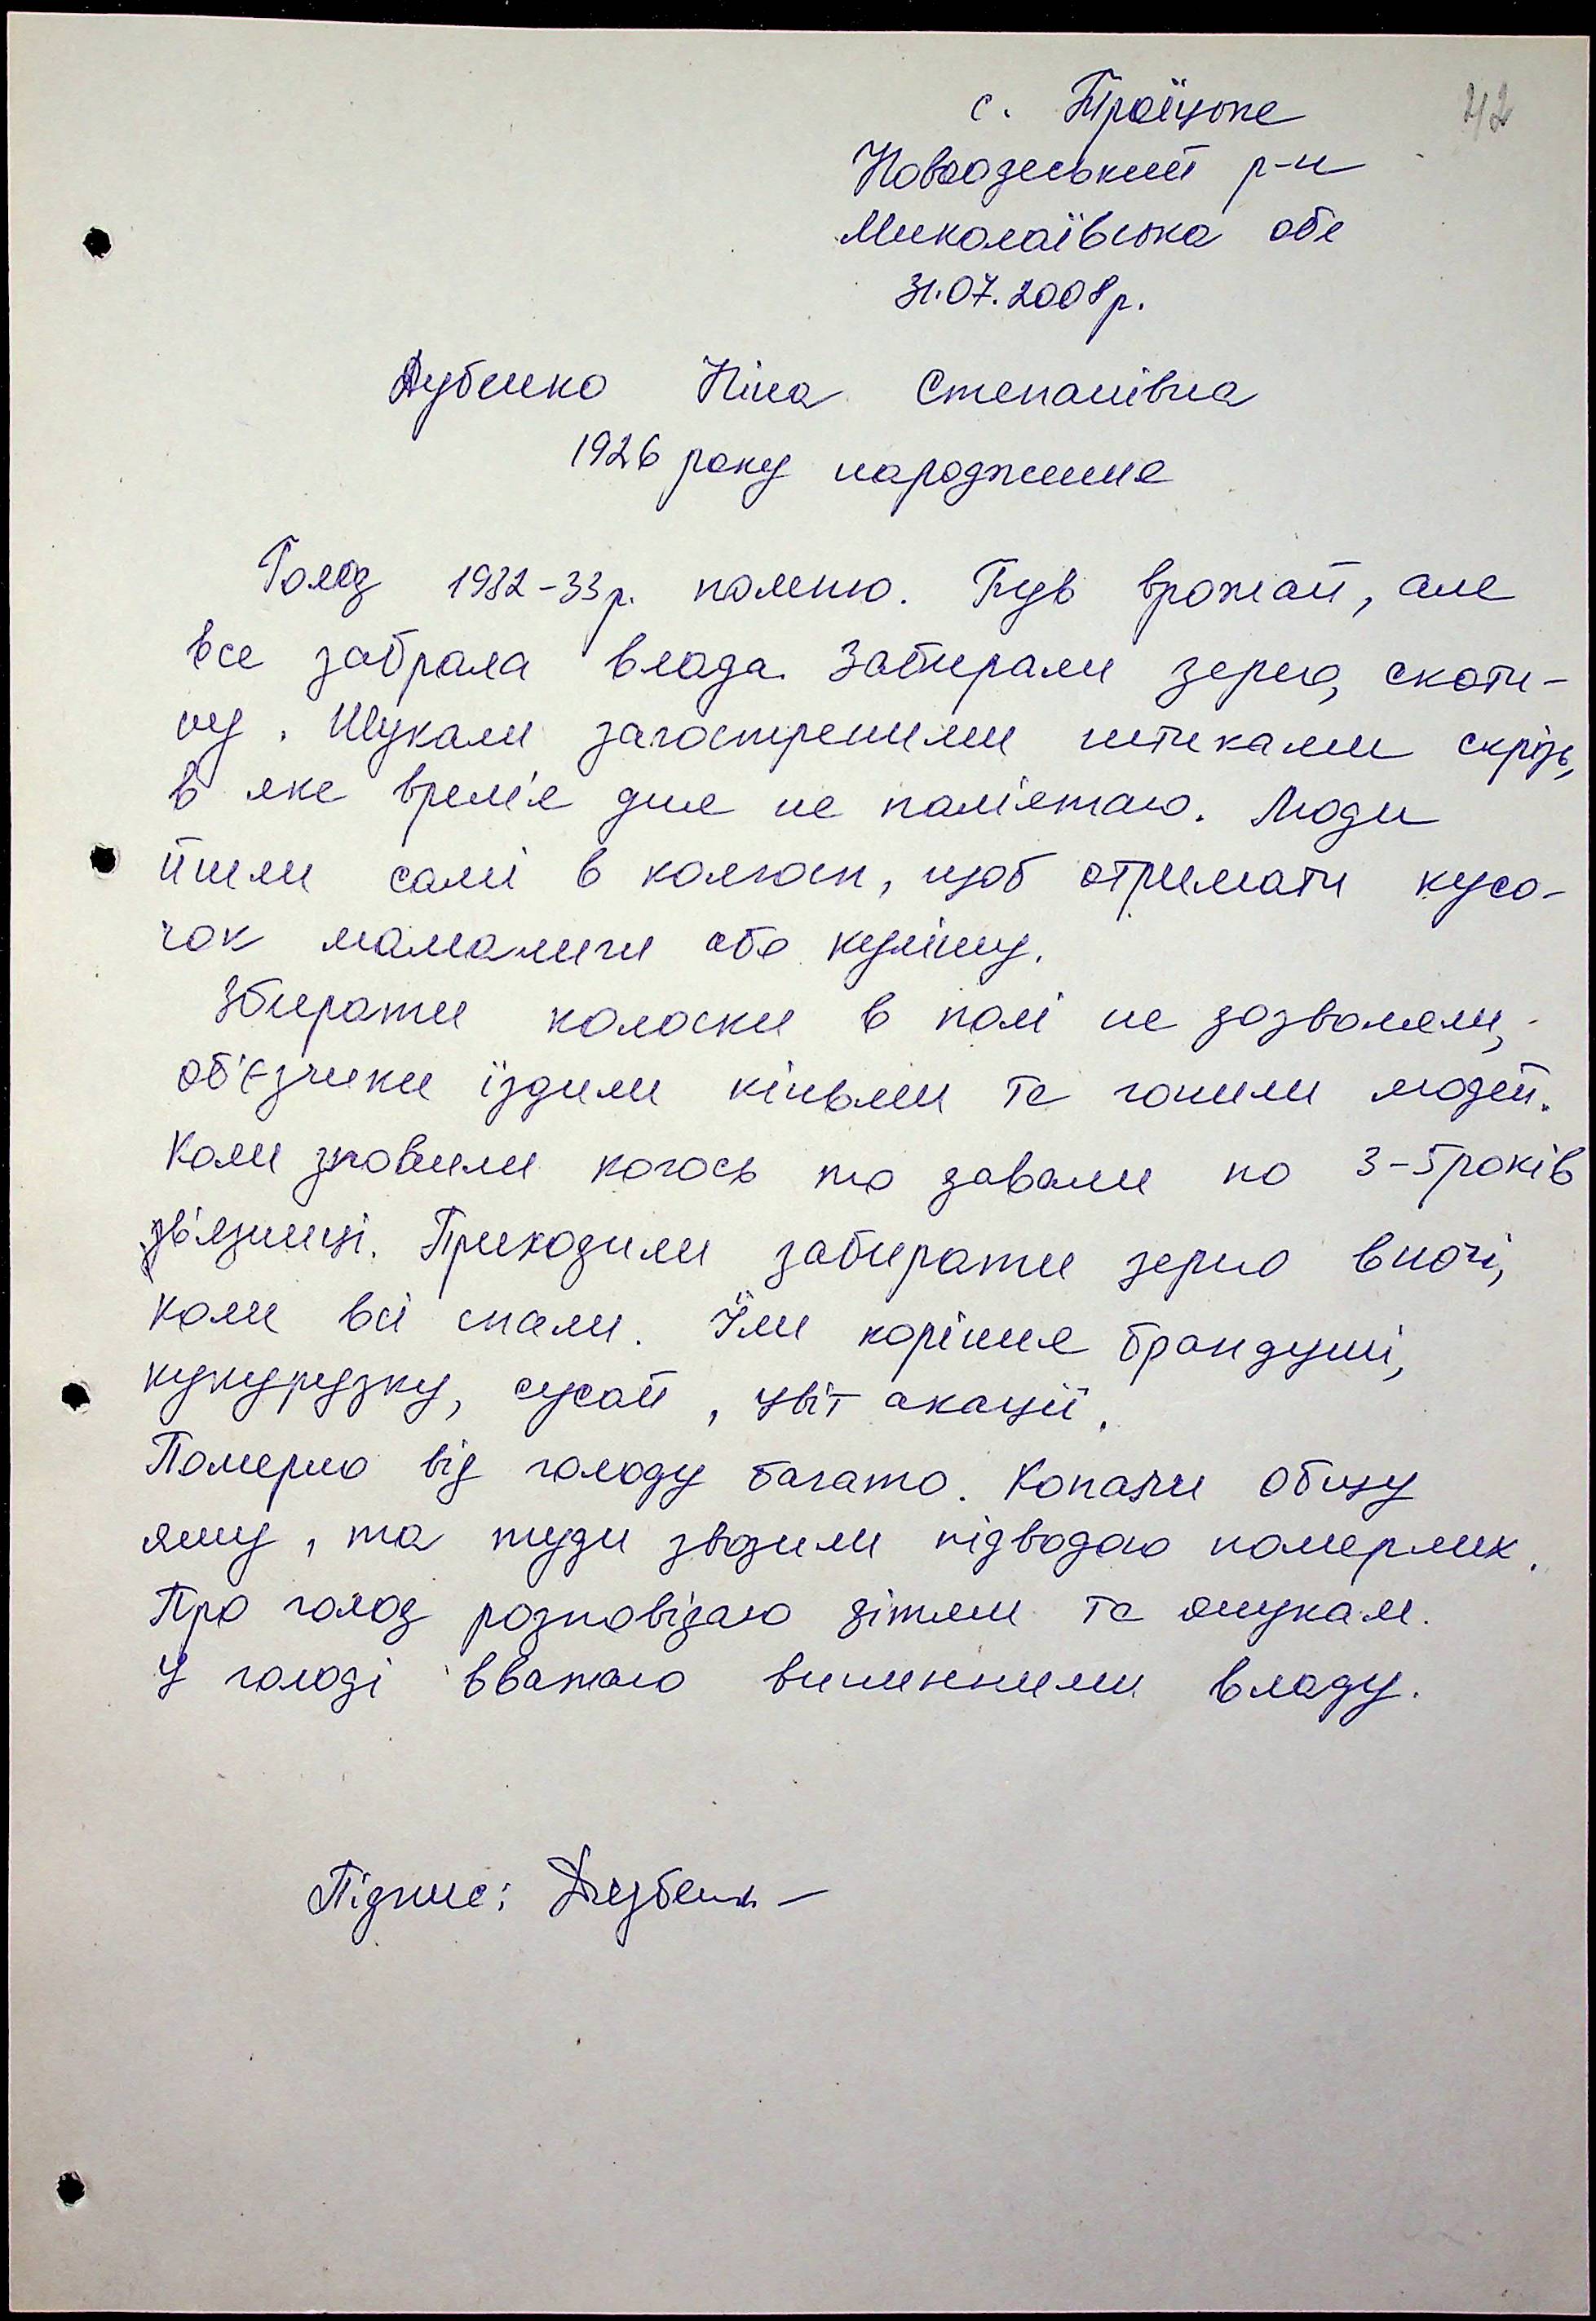 42
с. Троїцьке
Новоодеський р-н
Миколаївська обл
31.07.2008р.
Дубенко Ніна Степанівна
1926 року народження
Голод 1932-33р. помню. Був врожай, але
все забрала влада. Забирали зерно, скоти-
ну. Шукали загостреними штиками скрізь,
в яке врем'я дня не пам'ятаю. Люди
йшли самі в колгосп, щоб отримати кусо-
чок мамалиги або кулішу.
Збирати колоски в полі не дозволяли,
об'єзчики їздили кіньми та гонили людей.
Коли зловили когось то давали по 3-5 років
в'язниці. Приходили забирати зерно вночі,
коли всі спали. Їли коріння брандуші,
кукурузку, сусай, цвіт акації.
Померло від голоду багато. Копали общу
яму, та туди звозили підводою померлих.
Про голод розповідаю дітям та онукам.
У голоді вважаю виненними владу.
Підпис: Дубенк